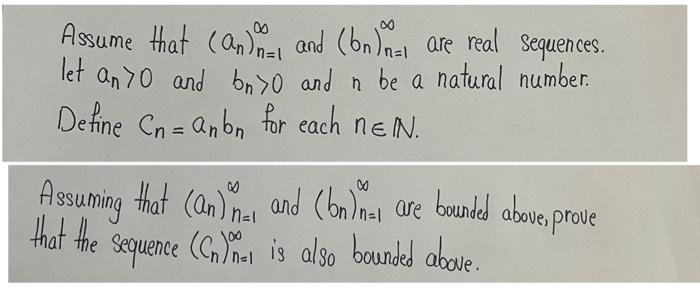 Assume that (an)∞n=1 and (bn)∞n=1 are real sequences.
let an>0 and bn>0 and n be a natural number.
Define Cn = anbn for each n∈ℕ.
Assuming that (an)∞n=1 and (bn)∞n=1 are bounded above, prove
that the sequence (Cn)∞n=1 is also bounded above.